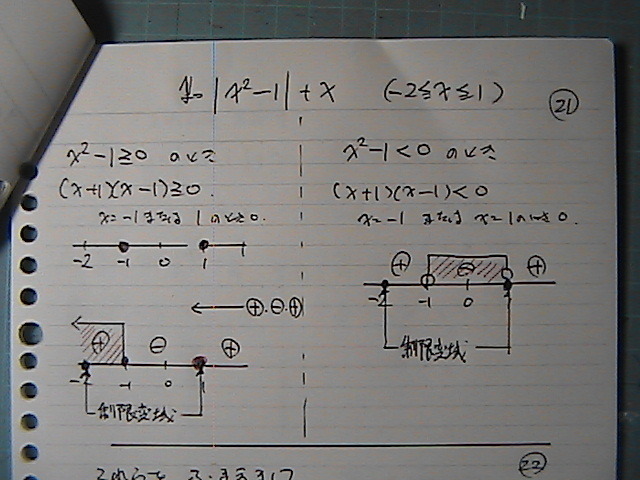 y= |x²-1| + x (-2≦x≦1)
21
x²-1≧0 のとき
(x+1)(x-1)≧0
x=-1 または 1 のとき 0.
-2 -1 0 1
←⊕・⊖・⊕
⊕ ⊖ ⊕
-2 -1 0 1
制限変域
x²-1<0 のとき
(x+1)(x-1)<0
x=-1 または x=1 のとき 0.
⊕ ⊖ ⊕
-2 -1 0
制限変域
22